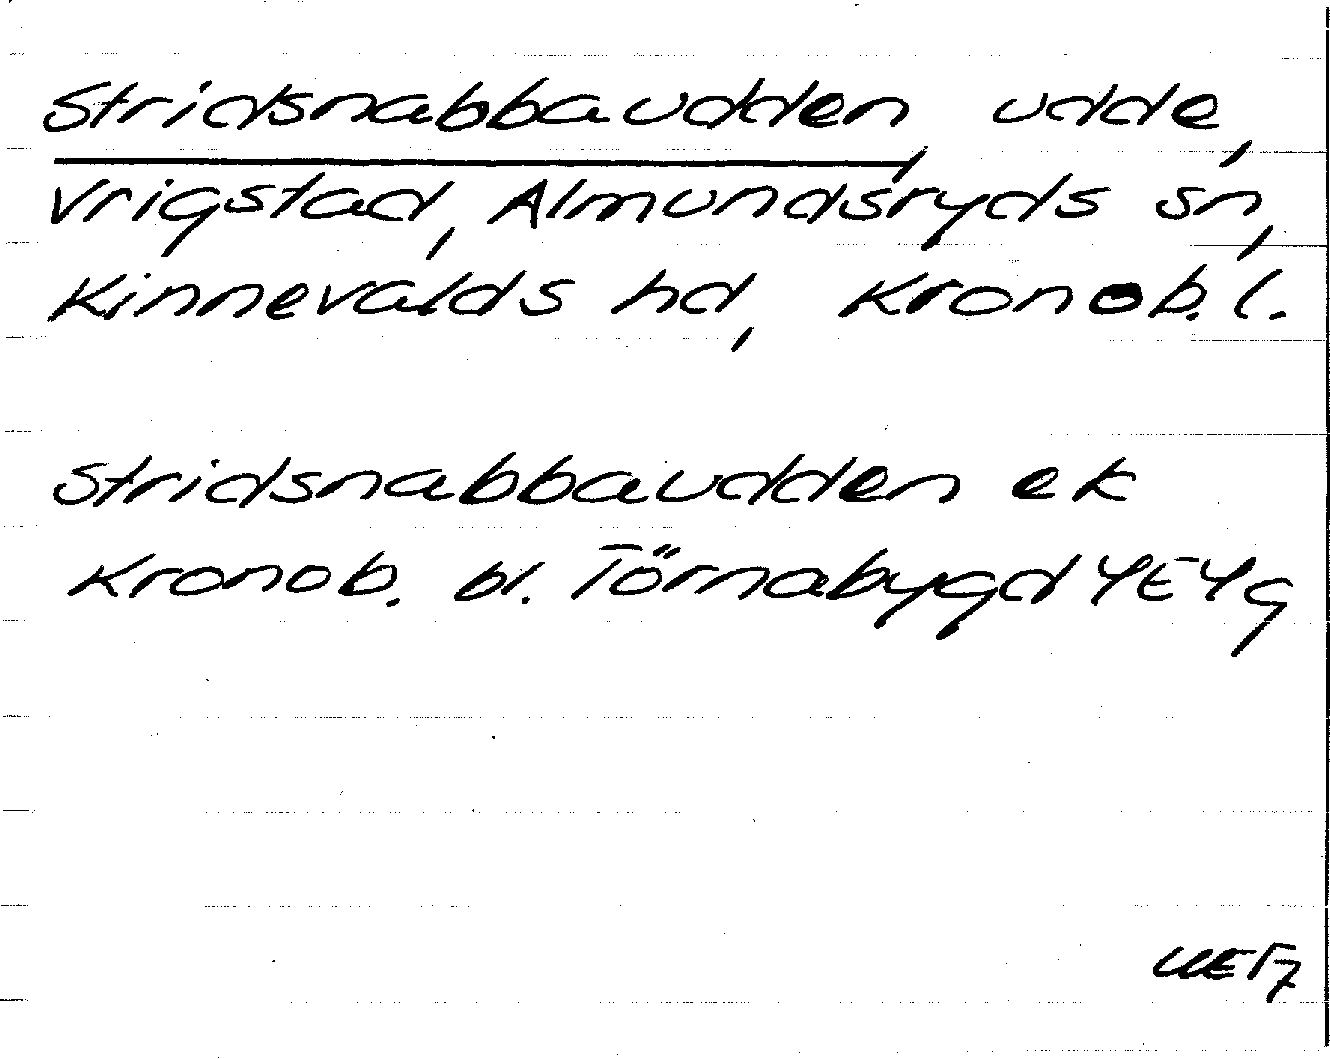 Stridsnabbaudden, udde,
Vrigstad, Almundsryds sn,
Kinnevalds hd, Kronob. l.
Stridsnabbaudden ek
Kronob. bl. Törnabygd 4E4g